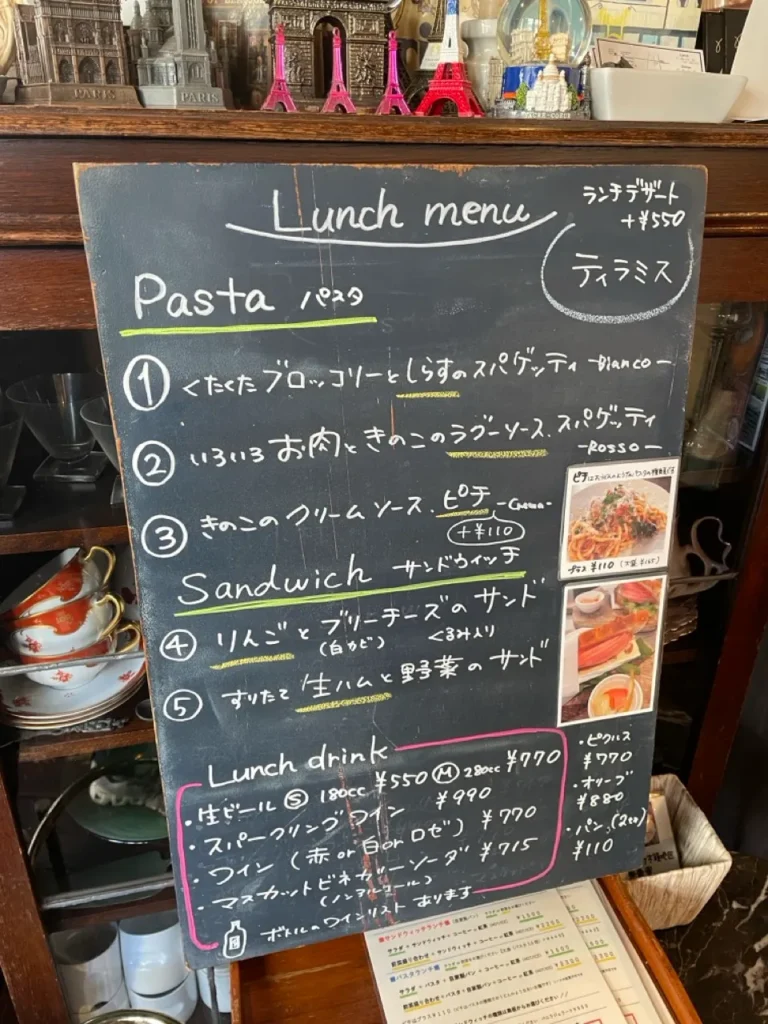 PARIS
PARIS
Lunch menu
ランチデザート
+¥550
ティラミス
Pasta パスタ
① くたくたブロッコリーとしらすのスパゲッティ -Bianco-
② いろいろお肉ときのこのラグーソース、スパゲッティ
-Rosso-
③ きのこのクリームソース、ピチ
+¥110
プラス ¥110
Sandwich サンドウィッチ
④ りんごとブリーチーズのサンド
(白カビ) くるみ入り
⑤ すりたて生ハムと野菜のサンド
Lunch drink
・生ビール Ⓢ 180cc ¥550 Ⓜ 280cc ¥770
・スパークリングワイン ¥990
・ワイン (赤 or 白 or ロゼ) ¥770
・マスカットビネガーソーダ ¥715
(ノンアルコール)
ボトルのワインリストあります
・ピクルス
¥770
・オリーブ
¥880
・パン (2コ)
¥110